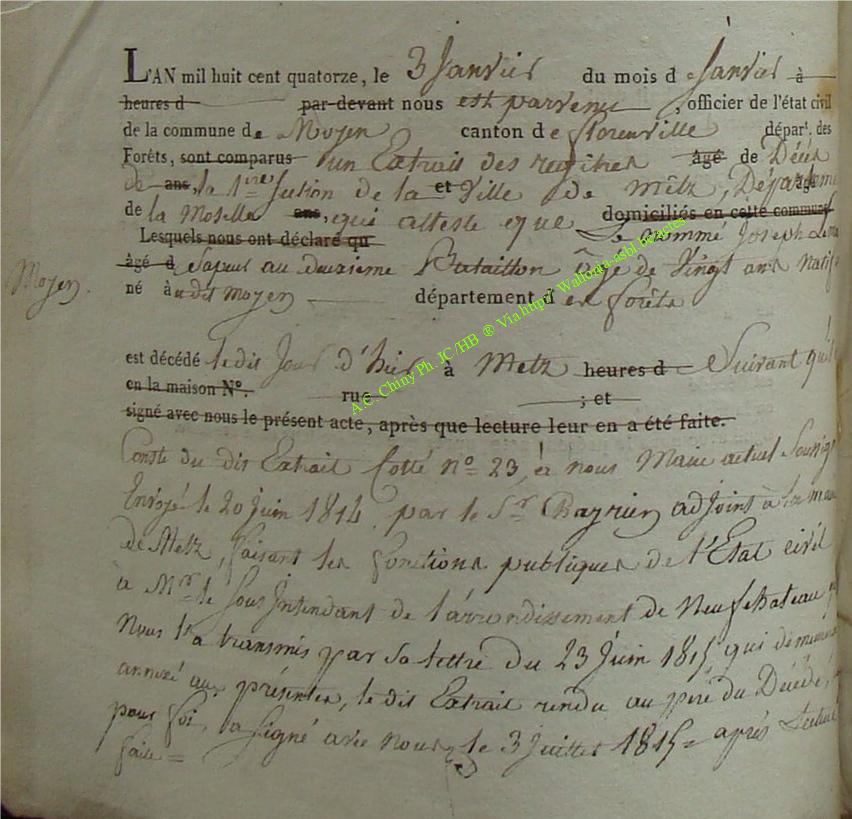 L'AN mil huit cent quatorze, le 3 Janvier du mois d e Janvier à
heures d par-devant nous est parvenu, officier de l'état civil
de la commune de Moyen canton de florenville départ. des
Forêts, sont comparus un Extrait des registres âgé de Décès
de ans, la 1re Section de la et Ville de Metz, Départeme âgé
de la Moselle ans, qui atteste que domiciliés en cette commune
Lesquels nous ont déclaré qu Le nommé Joseph
âgé d Sapeur au deuxième Bataillon âgé de Vingt ans natif
Moyen.
né à udit Moyen département d es forêts
est décédé le dit Jour d'hier à Metz heures d Suivant qu'il
en la maison N°. rue ; et
signé avec nous le présent acte, après que lecture leur en a été faite.
Conste du dit Extrait Cotté n° 23, et nous Maire actuel Soussig
Envoyé le 20 Juin 1814, par le Sr. adjoint à la
de Metz, faisant les fonctions publiques de l'Etat civil
à Mr. le Sous Intendant de l'arrondissement de Neufchateau
Nous l'a transmis par sa lettre du 23 Juin 1815, qui demeure
annexé aux présentes, le dit Extrait rendu au père du Décédé,
pour foi, a Signé avec nous, le 3 Juillet 1815 = après Lecture
faite =
A.C. Chiny Ph. JC/HB ® Via http// Wallonia-asbl be/actes